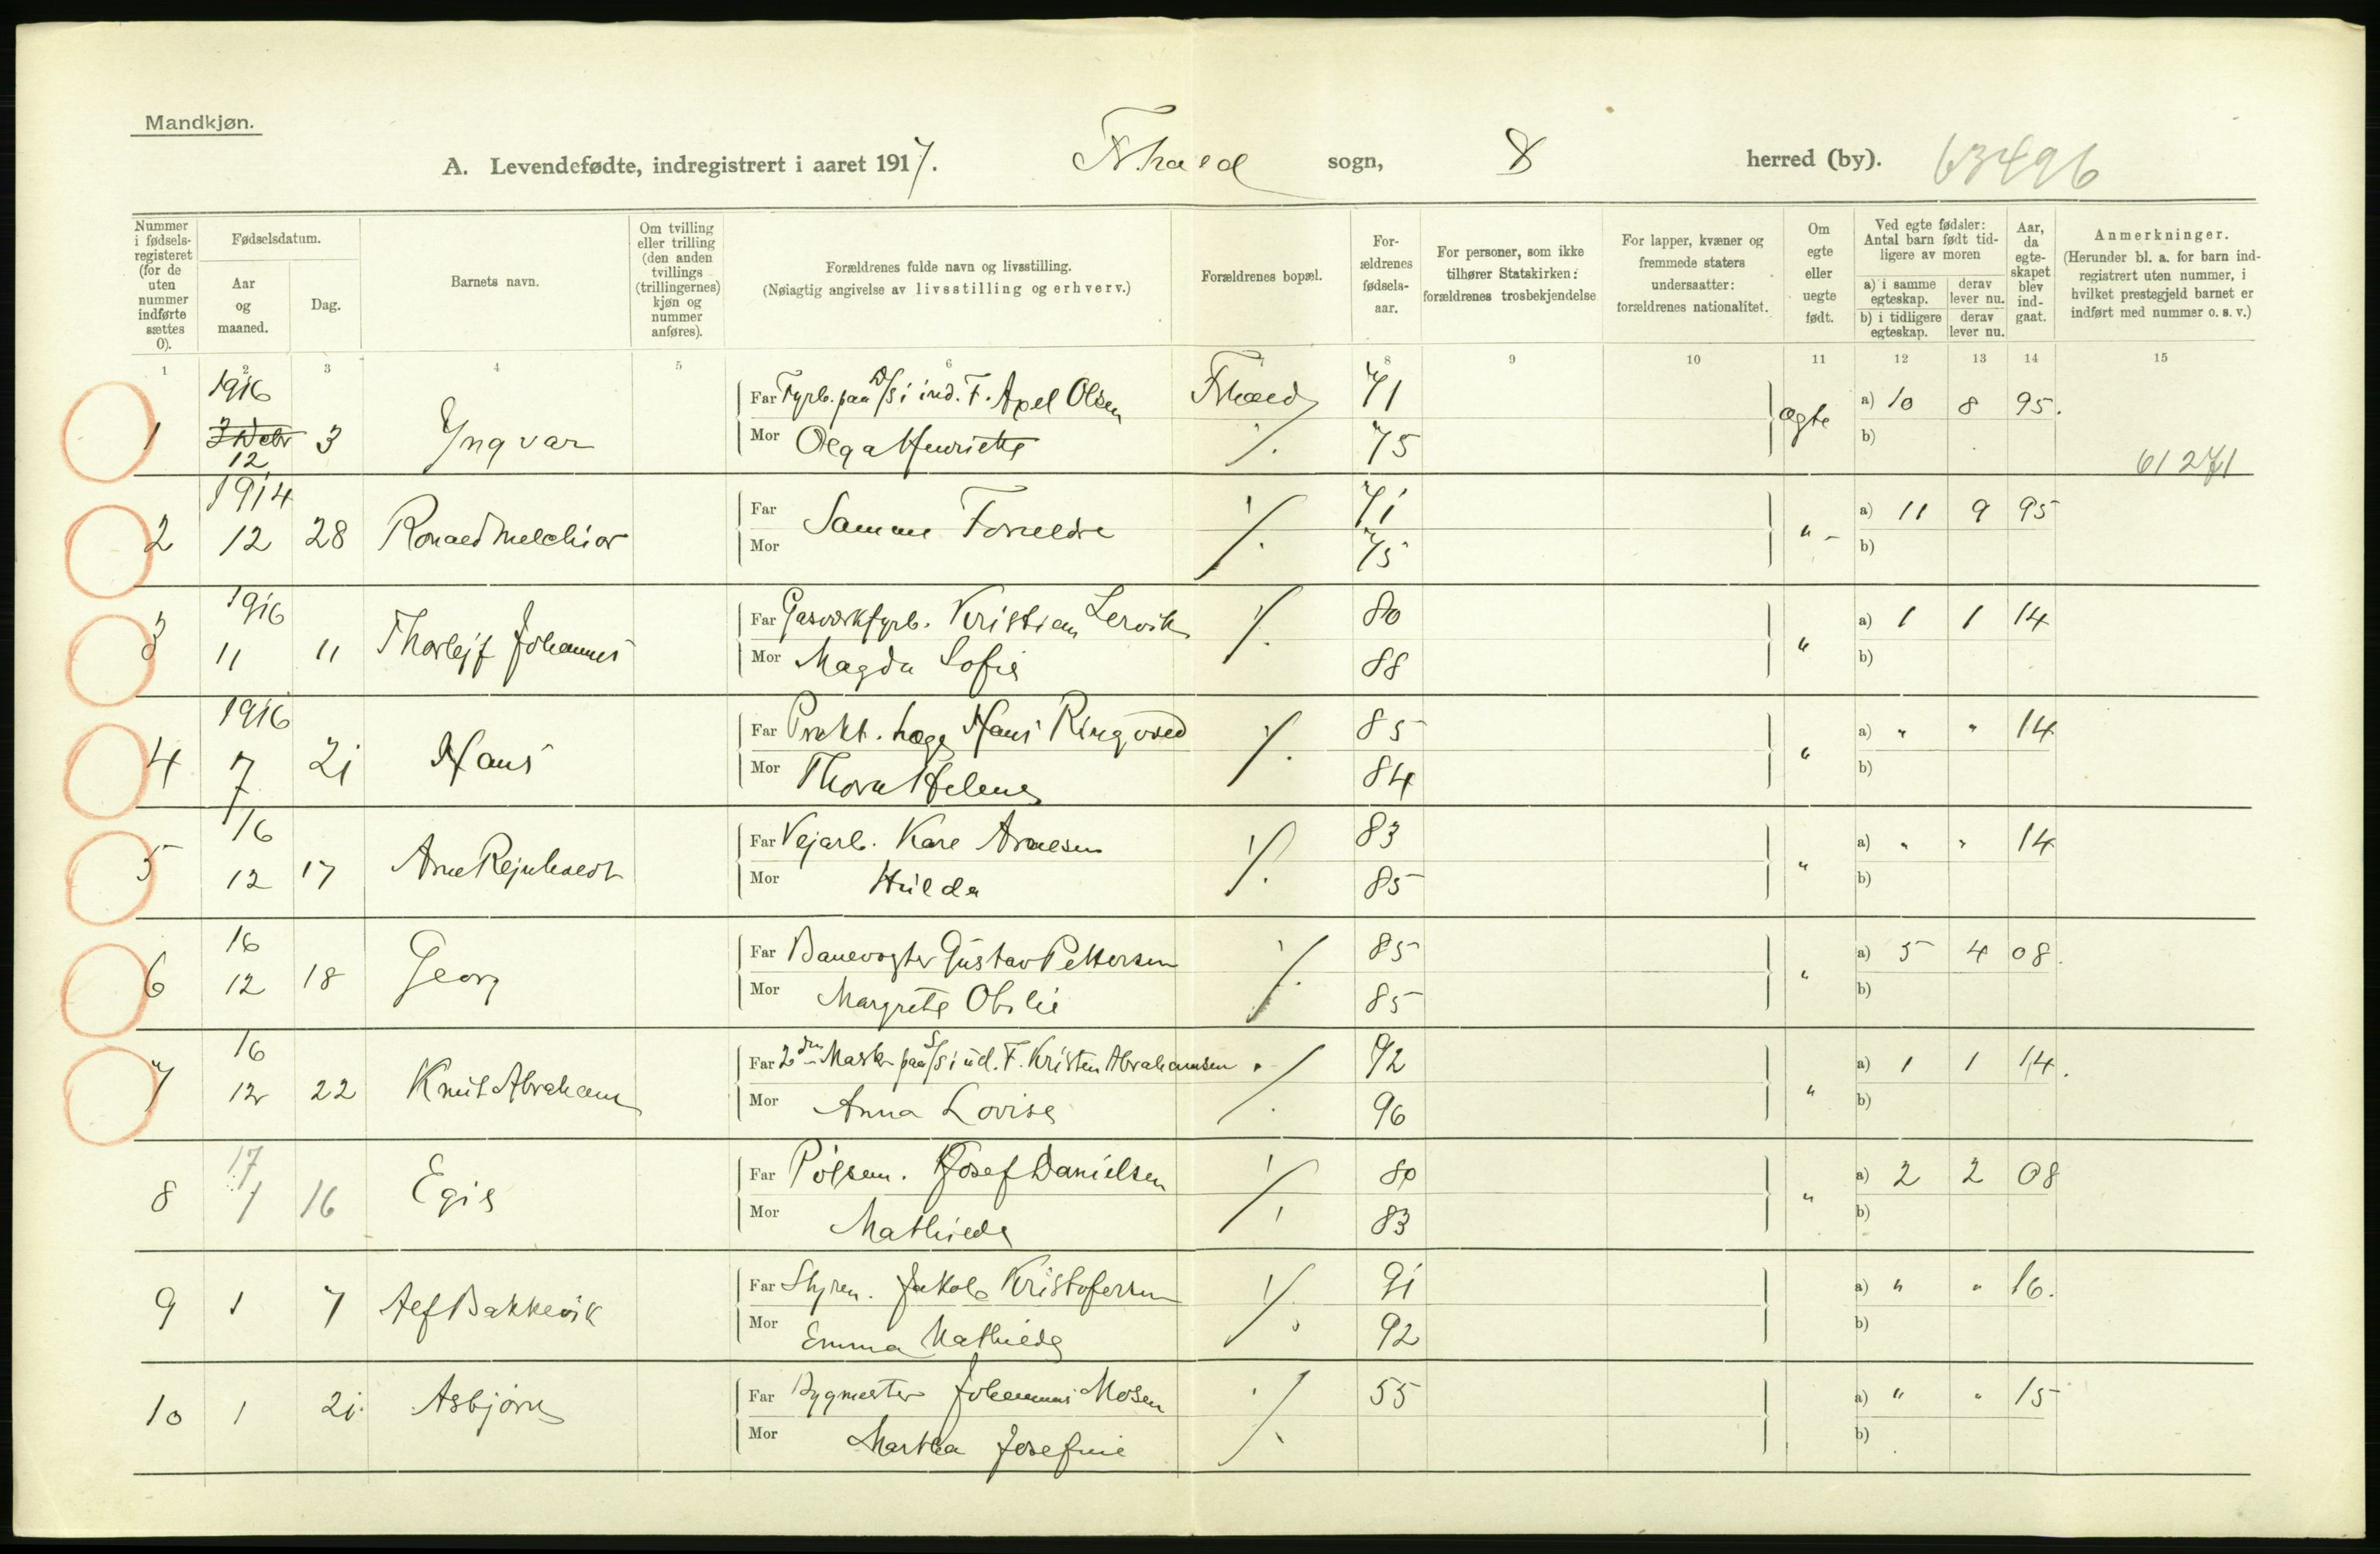 Mandkjøn.
A. Levendefødte, indregistrert i aaret 1917. Fr.hald sogn, herred (by). 63496
Nummer i fødsels-registeret (for de uten nummer indførte sættes 0).
Fødselsdatum.
Aar og maaned.
Dag.
Barnets navn.
Om tvilling eller trilling (den anden tvillings (trillingernes) kjøn og nummer anføres).
Forældrenes fulde navn og livsstilling.
(Nøiagtig angivelse av livsstilling og erhverv.)
Forældrenes bopæl.
For-ældrenes fødsels-aar.
For personer, som ikke tilhører Statskirken: forældrenes trosbekjendelse
For lapper, kvæner og fremmede staters undersaatter: forældrenes nationalitet.
Om egte eller uegte født.
Ved egte fødsler: Antal barn født tid-ligere av moren
a) i samme egteskap. derav lever nu.
b) i tidligere egteskap. derav lever nu.
Aar, da egte-skapet blev ind-gaat.
Anmerkninger.
(Herunder bl. a. for barn ind-registrert uten nummer, i hvilket prestegjeld barnet er indført med nummer o. s. v.)
1 2 3 4 5 6 8 9 10 11 12 13 14 15
1916
Far Fyrb. paa D/S i ind. F. Axel Olsen Frhald 71 a) 10 8 95.
1 12 3 Yngvar Mor Olga Henriette ./. 75 ægte b)
61271
1914
2 12 28 Ronald Melchior Far Mor Samme Forældre ./. 71 75 " - a) 11 9 95 b)
1916
3 11 11 Thorlejf Johannes Far Gasværkfyrb. Kristian Lervik ./. 80 " a) 1 1 14
Mor Magda Sofie 88 b)
1916
4 7 21 Hans Far Prakt. læge Hans Ringvold ./. 85 " a) " " 14
Mor Thora Helene 84 b)
16
5 12 17 Arne Rejnholdt Far Vejarb. Karl Arnesen ./. 83 " a) " " 14
Mor Hulda 85 b)
16
6 12 18 Georg Far Banevogter Gustav Pettersen ./. 85 " a) 5 4 08.
Mor Margrete Otilie 85 b)
16
7 12 22 Knut Abraham Far 2den Mask. paa S/S i ud. F. Kristen Abrahamsen ./. 92 " a) 1 1 14.
Mor Anna Lovise 96 b)
17
8 1 16 Egil Far Pølsem. Josef Danielsen ./. 80 " a) 2 2 08
Mor Mathilde 83 b)
9 1 7 Alf Bakkevik Far Styrm. Jakob Kristofersen ./. 91 a) " " 16.
Mor Emma Mathilde 92 b)
10 1 21. Asbjørn Far Bygmester Johannes Mosen ./. 55 a) " " 15
Mor Martha Josefine b)